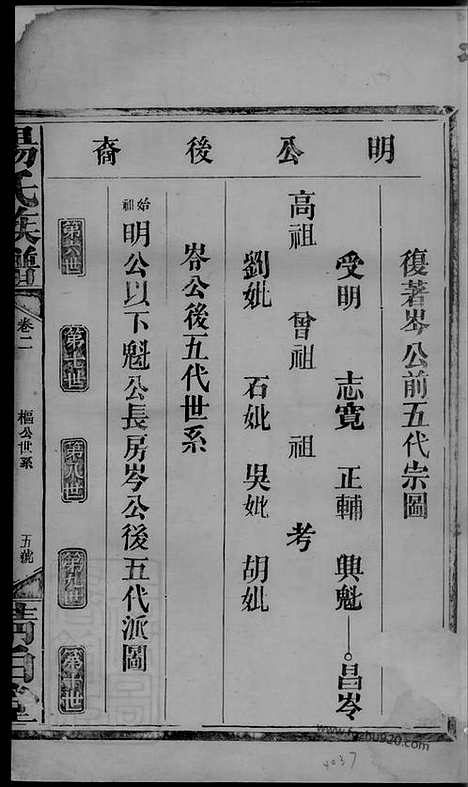 明公後裔
復著岑公前五代宗圖
受明 志寬 正輔 興魁——○昌岑
高祖 曾祖 祖 考
劉妣 石妣 吳妣 胡妣
岑公後五代世系
始祖明公以下魁公長房岑公後五代派圖
第六世 第七世 第八世 第九世 第十世
楊氏族譜 卷二 樞公世系 五號 清白堂
4037